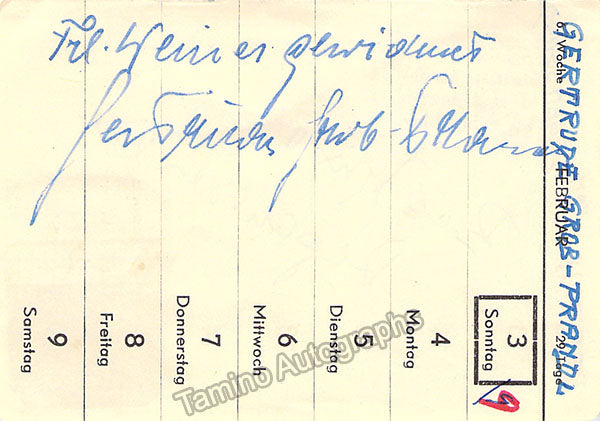 Frl. Weiner gewidmet
Gertrude Grob-Prandl
GERTRUDE GROB-PRANDL
6. Woche
FEBRUAR
29 Tage
3
Sonntag
4
Montag
5
Dienstag
6
Mittwoch
7
Donnerstag
8
Freitag
9
Samstag
Tamino Autographs